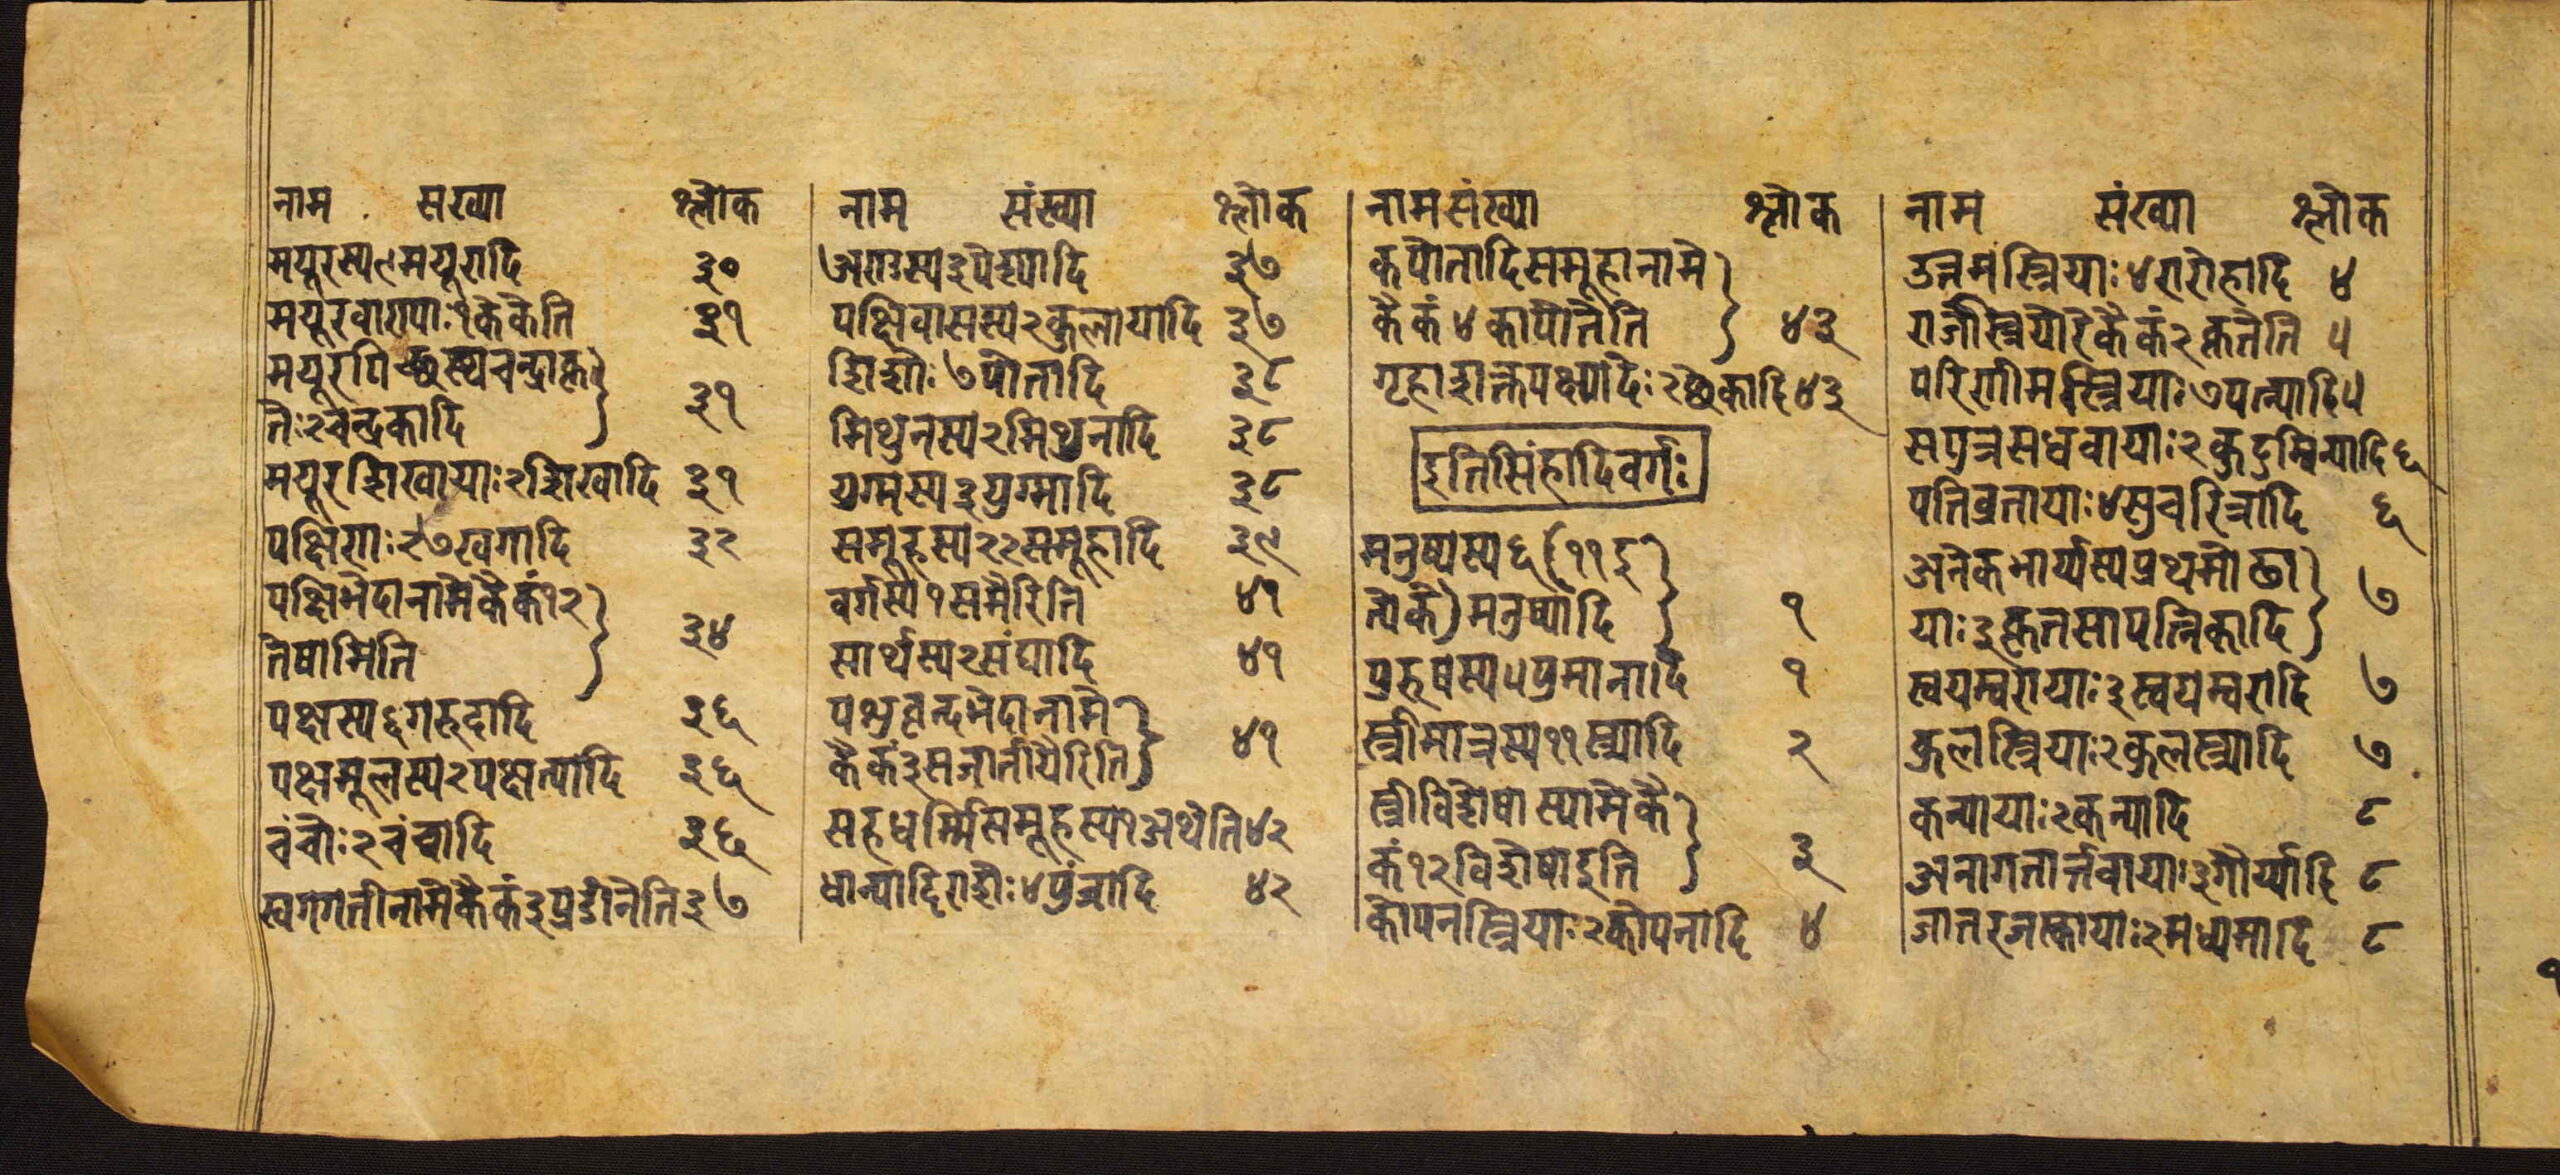 नाम सख्या श्लोक
मयूरस्य९मयूरादि ३०
मयूरवाण्याः१केकेति ३१
मयूरपिच्छस्थचन्द्राकृ
तेः२चन्द्रकादि ३१
मयूरशिखायाः२शिखादि ३१
पक्षिणः२७खगादि ३२
पक्षिभेदानामेकैकं१२
तेषामिति ३४
पक्षस्य६गरुदादि ३६
पक्षमूलस्य२पक्षत्यादि ३६
चंचोः२चंच्वादि ३६
खगगतीनामेकैकं३प्रडीनेति३७
नाम संख्या श्लोक
अण्डस्य३पेश्यादि ३७
पक्षिवासस्य२कुलायादि ३७
शिशोः७पोतादि ३८
मिथुनस्य२मिथुनादि ३८
युग्मस्य३युग्मादि ३८
समूहस्य२२समूहादि ३९
वर्गस्य१समैरिति ४१
सार्थस्य२संघादि ४१
पशुवृन्दभेदानामे
कैकं३सजातीयैरिति ४१
सहधर्म्मिसमूहस्य१अथेति४२
धान्यादिराशेः४पुंजादि ४२
नामसंख्या श्लोक
कपोतादिसमूहानामे
कैकं४कापोतेति ४३
गृहाशक्तपक्ष्यादेः२छेकादि४३
इतिसिंहादिवर्गः
मनुष्यस्य६(११इ
त्येके)मनुष्यादि १
पुरुषस्य५पुमानादि १
स्त्रीमात्रस्य११स्त्र्यादि २
स्त्रीविशेषास्यामेकै
कं१२विशेषाइति ३
कोपनस्त्रियाः२कोपनादि ४
नाम संख्या श्लोक
उत्तमस्त्रियाः४रारोहादि ४
राज्ञीस्त्रियोरेकैकं२कृतेति ५
परिणीमस्त्रियाः७पत्न्यादि५
सपुत्रसधवायाः२कुटुम्बिन्यादि६
पतिव्रतायाः४सुचरित्रादि ६
अनेकभार्य्यस्यप्रथमोढा
याः३कृतसापत्निकादि ७
स्वयम्वरायाः३स्वयम्वरादि ७
कुलस्त्रियाः२कुलस्त्र्यादि ७
कन्यायाः२कन्यादि ८
अनागतार्त्तवायाः३गौर्य्यादि ८
जातरजस्कायाः२मध्यमादि ८